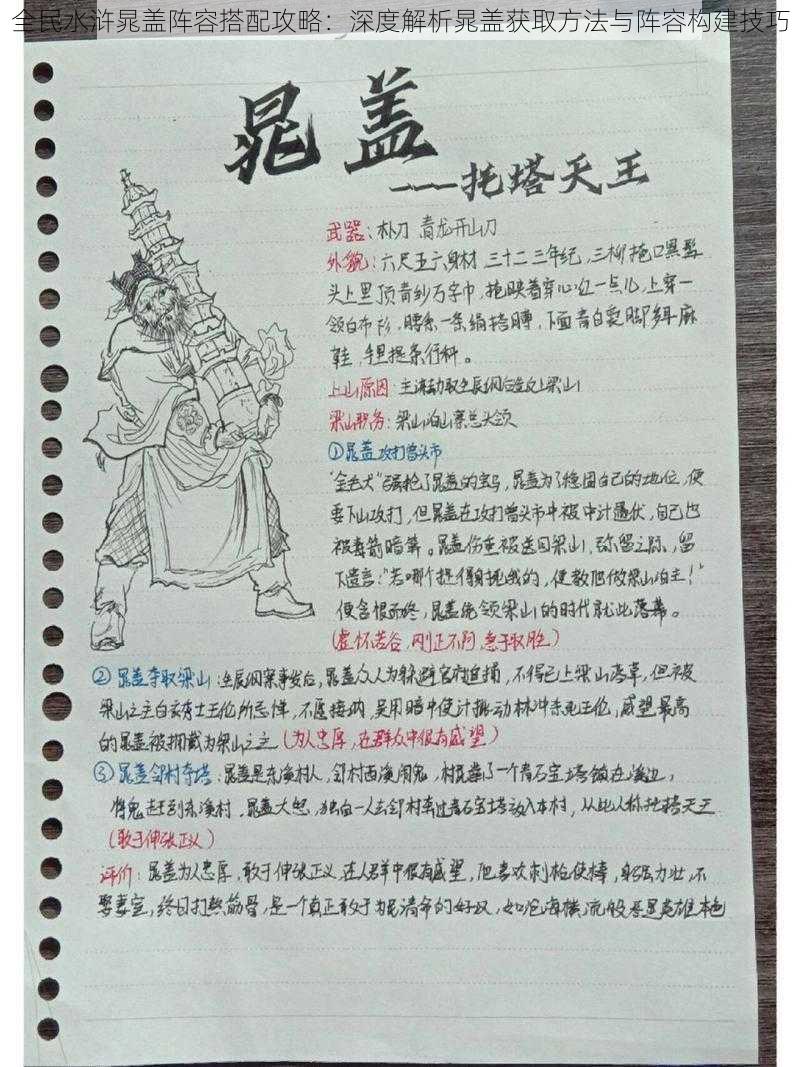 全民水浒晁盖阵容搭配攻略：深度解析晁盖获取方法与阵容构建技巧
晁盖
---托塔天王
武器：朴刀 青龙开山刀
外貌：六尺五六身材 三十二三年纪，三柳掩口黑髯
头上里顶青纱万字巾，掩映着穿心红一点儿，上穿一
领白布衫，腰系一条绢搭膊，下面青白裹脚多耳麻
鞋，手里提条行杆。
上山原因：主动取生辰纲后上梁山
梁山职务：梁山泊山寨总头领
①晁盖攻打曾头市
"金毛犬"强抢了晁盖的宝马，晁盖为了稳固自己的地位，便
要下山攻打，但晁盖在攻打曾头市中被中计遇伏，自己也
被毒箭暗算。晁盖伤重被送回梁山，弥留之际，留
下遗言："若哪个捉得射死我的，便教他做梁山泊主！"
便含恨而终，晁盖统领梁山的时代就此落幕。
（虚怀若谷，刚正不阿 急于取胜）
②晁盖夺取梁山：生辰纲案事发后，晁盖众人为躲避官府追捕，不得已上梁山落草，但被
梁山之主白衣秀士王伦所忌惮，不愿接纳，吴用暗中使计挑动林冲杀死王伦，威望最高
的晁盖被拥戴为梁山之主（为人忠厚，在群众中很有威望）
③晁盖邻村夺塔：晁盖是东溪村人，邻村西溪闹鬼，村民凿了一个青石宝塔镇在溪边，
将鬼赶到东溪村，晁盖大怒，独自一人去邻村夺过青石宝塔放入本村，从此人称托塔天王
（敢于伸张正义）
评价：晁盖为人忠厚，敢于伸张正义，在人群中很有威望，他喜欢刺枪使棒，身强力壮，不
娶妻室，终日打熬筋骨，是一个真正敢于为民请命的好汉，如沧海横流般尽显英雄本色